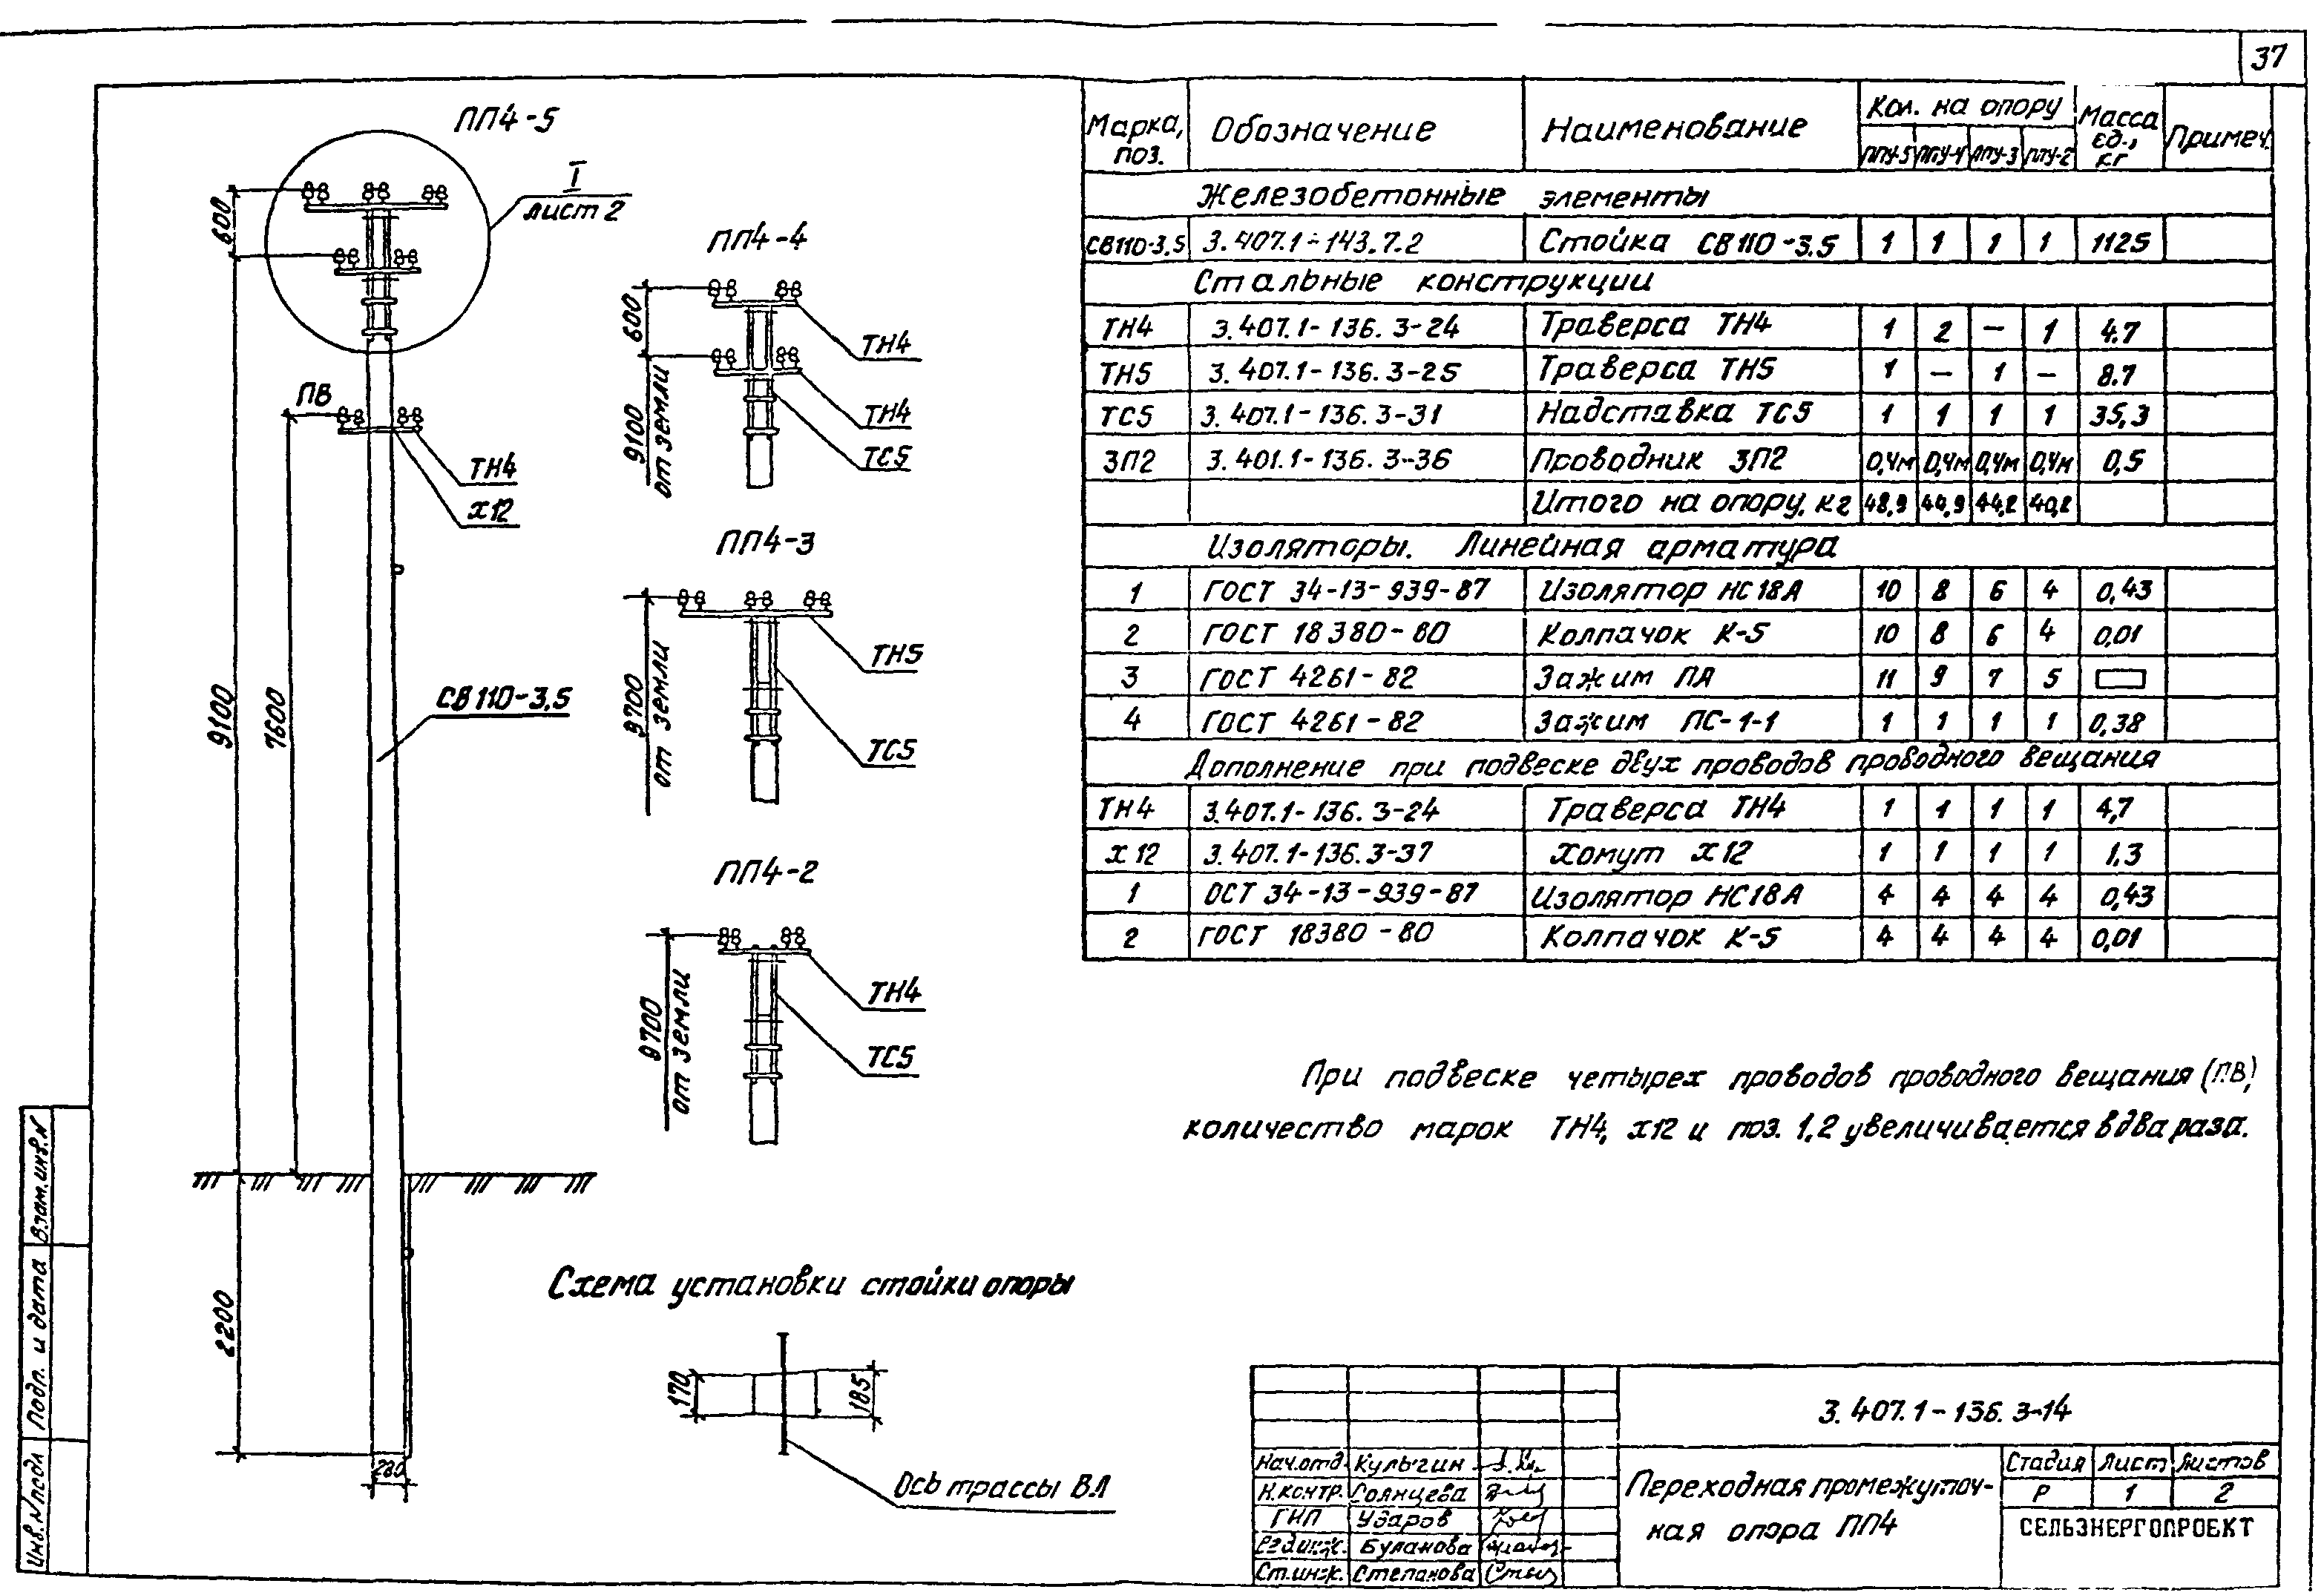 37
ПП4-5
I
лист 2
600
ПВ
ТН4
х12
9100
7600
СВ110-3,5
2200
280
ПП4-4
600
9100
от земли
ТН4
ТН4
ТС5
ПП4-3
9700
от земли
ТН5
ТС5
ПП4-2
9700
от земли
ТН4
ТС5
Схема установки стойки опоры
170
185
Ось трассы ВЛ
Марка, поз. Обозначение Наименование Кол. на опору Масса ед., кг Примеч.
ПП4-5 ПП4-4 ПП4-3 ПП4-2
Железобетонные элементы
СВ110-3,5 3.407.1-143.7.2 Стойка СВ110-3.5 1 1 1 1 1125
Стальные конструкции
ТН4 3.407.1-136.3-24 Траверса ТН4 1 2 — 1 4.7
ТН5 3.407.1-136.3-25 Траверса ТН5 1 — 1 — 8.7
ТС5 3.407.1-136.3-31 Надставка ТС5 1 1 1 1 35,3
ЗП2 3.401.1-136.3-36 Проводник ЗП2 0,4м 0,4м 0,4м 0,4м 0,5
Итого на опору, кг 48,9 44,9 44,2 40,2
Изоляторы. Линейная арматура
1 ГОСТ 34-13-939-87 Изолятор НС18А 10 8 6 4 0,43
2 ГОСТ 18380-80 Колпачок К-5 10 8 6 4 0,01
3 ГОСТ 4261-82 Зажим ПА 11 9 7 5
4 ГОСТ 4261-82 Зажим ПС-1-1 1 1 1 1 0,38
Дополнение при подвеске двух проводов проводного вещания
ТН4 3.407.1-136.3-24 Траверса ТН4 1 1 1 1 4,7
х12 3.407.1-136.3-37 Хомут х12 1 1 1 1 1.3
1 ОСТ 34-13-939-87 Изолятор НС18А 4 4 4 4 0,43
2 ГОСТ 18380-80 Колпачок К-5 4 4 4 4 0,01
При подвеске четырех проводов проводного вещания (ПВ)
количество марок ТН4, х12 и поз. 1,2 увеличивается в два раза.
Взам.инв.N
Подп. и дата
Инв.N подл
3.407.1-136.3-14
Нач.отд. Кулыгин
Н.контр. Солнцева
ГИП Ударов
Вед.инж. Буланова
Ст.инж. Степанова
Переходная промежуточ-
ная опора ПП4
Стадия Лист Листов
Р 1 2
СЕЛЬЭНЕРГОПРОЕКТ